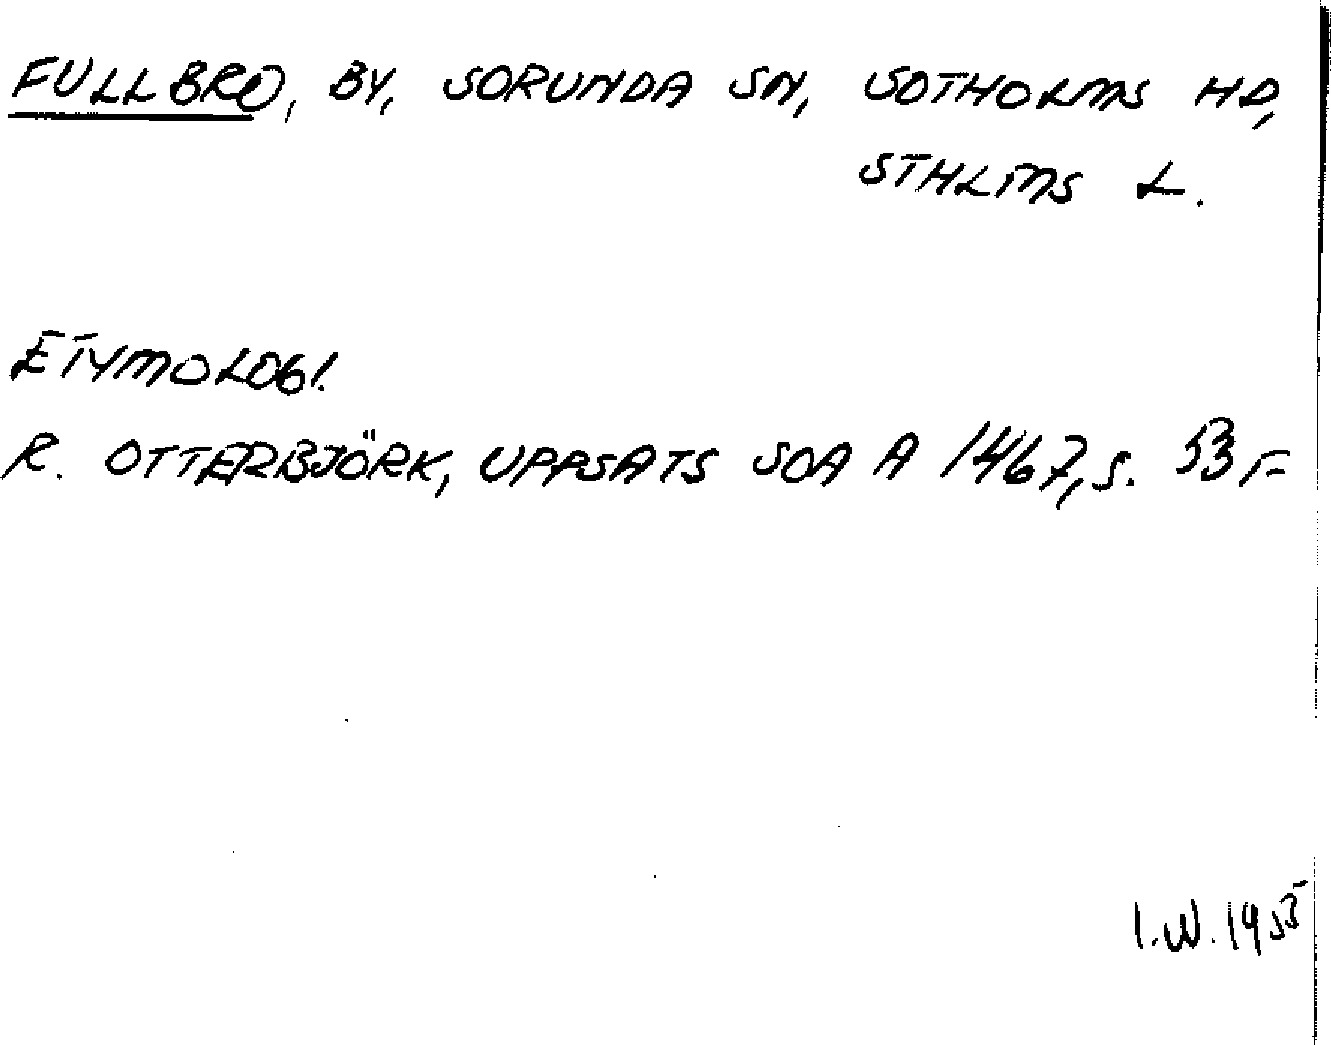 FULLBRO, BY, SORUNDA SN, SOTHOLMS HD,
STHLMS L.
ETYMOLOGI.
R. OTTERBJÖRK, UPPSATS SOA A 1467, S. 53 F
I.W. 1955